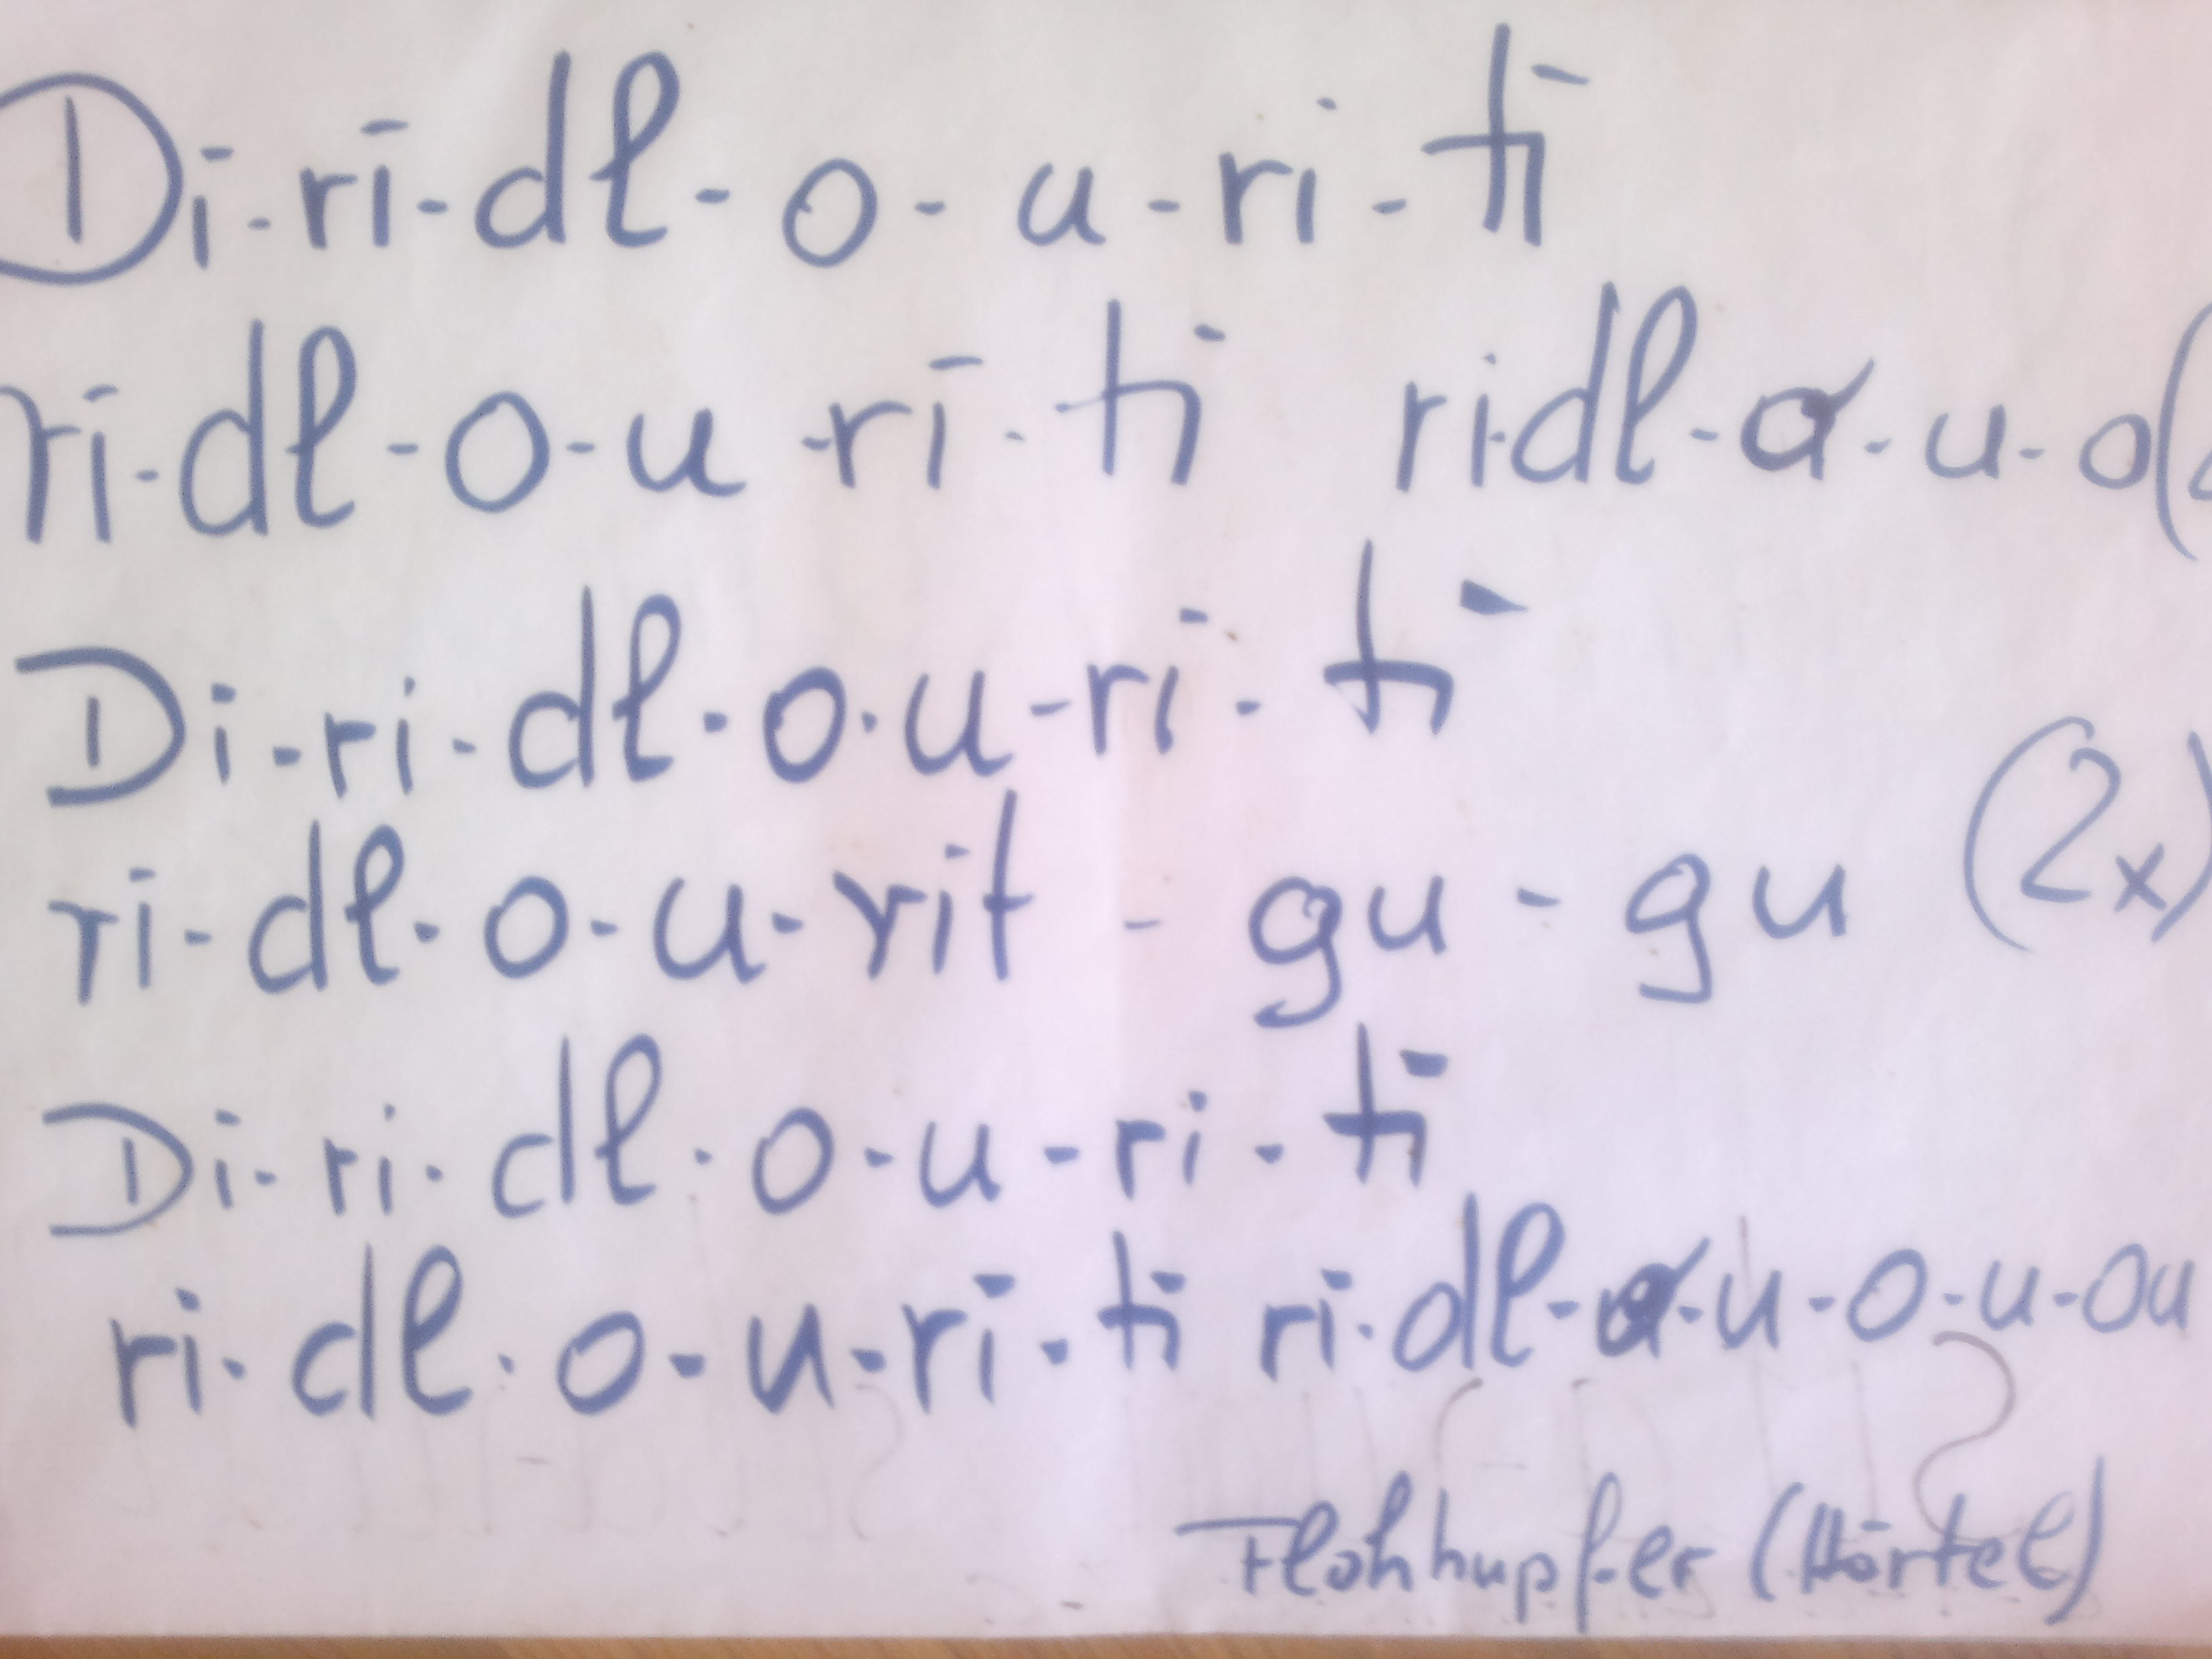 Di-ri-dl-o-u-ri-ti
ri-dl-o-u-ri-ti ridl-a-u-o(
Di-ri-dl-o-u-ri-ti
ri-dl-o-u-rit-gu-gu (2x)
Di-ri-dl-o-u-ri-ti
ri-dl-o-u-ri-ti ri-dl-a-u-o-u-ou
Flohhupfer (Härtel)